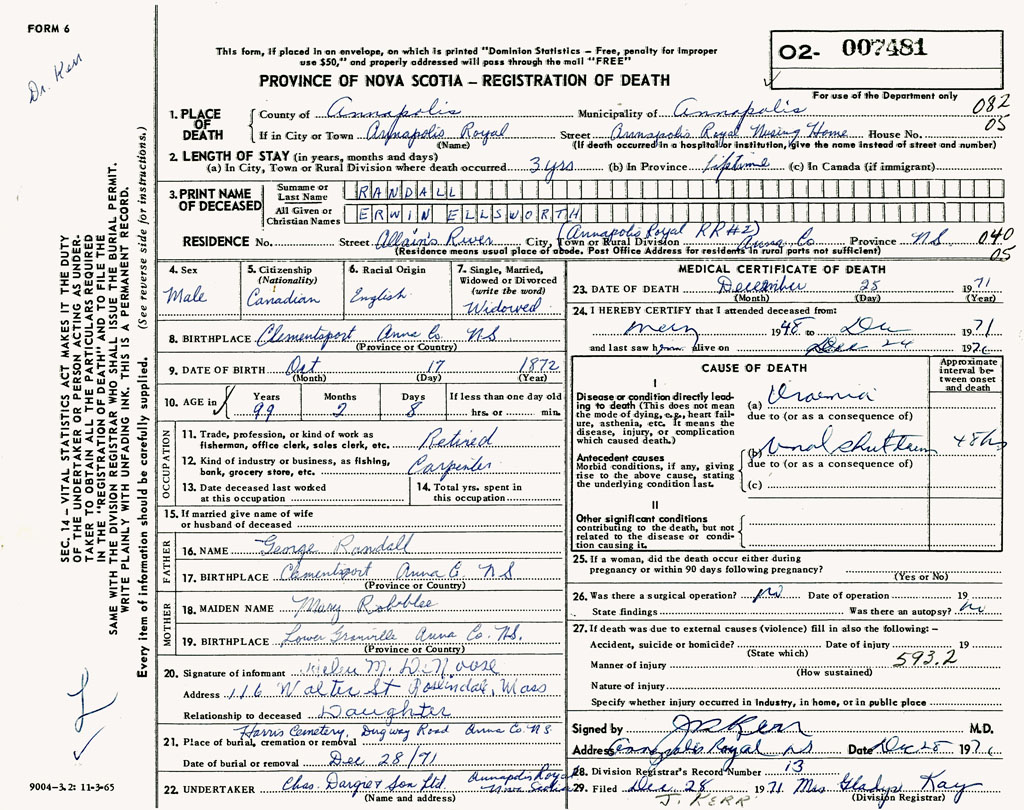 FORM 6
Dr. Kerr
This form, if placed in an envelope, on which is printed "Dominion Statistics – Free, penalty for improper
use $50," and properly addressed will pass through the mail "FREE"
PROVINCE OF NOVA SCOTIA – REGISTRATION OF DEATH
O2- 007481
For use of the Department only
082
05
1. PLACE OF DEATH
County of Annapolis Municipality of Annapolis
If in City or Town Annapolis Royal Street Annapolis Royal Nursing Home House No.
(Name) (If death occurred in a hospital or institution, give the name instead of street and number)
2. LENGTH OF STAY (in years, months and days)
(a) In City, Town or Rural Division where death occurred 3 yrs (b) In Province lifetime (c) In Canada (if immigrant)
3. PRINT NAME OF DECEASED
Surname or Last Name RANDALL
All Given or Christian Names ERWIN ELLSWORTH
(Annapolis Royal RR#2)
RESIDENCE No. Street Allain's River City, Town or Rural Division Anna Co Province NS
(Residence means usual place of abode. Post Office Address for residents in rural parts not sufficient)
040
05
4. Sex Male
5. Citizenship (Nationality) Canadian
6. Racial Origin English
7. Single, Married, Widowed or Divorced (write the word) Widowed
8. BIRTHPLACE Clementsport Anna Co. NS
(Province or Country)
9. DATE OF BIRTH Oct 17 1872
(Month) (Day) (Year)
10. AGE in Years 99 Months 2 Days 8 If less than one day old hrs. or min.
OCCUPATION
11. Trade, profession, or kind of work as fisherman, office clerk, sales, etc. Retired
12. Kind of industry or business, as fishing, bank, grocery store, etc. Carpenter
13. Date deceased last worked at this occupation
14. Total yrs. spent in this occupation
15. If married give name of wife or husband of deceased
FATHER
16. NAME George Randall
17. BIRTHPLACE Clementsport Anna Co NS
(Province or Country)
MOTHER
18. MAIDEN NAME Mary Robblee
19. BIRTHPLACE Lower Granville Anna Co. NS.
(Province or Country)
20. Signature of informant Helen M.
Address 116 Walter St Roslindale, Mass
Relationship to deceased Daughter
Harris Cemetery, Dugway Road Anna Co NS
21. Place of burial, cremation or removal
Date of burial or removal Dec 28/71
22. UNDERTAKER Chas. Dargie & Son Ltd. Annapolis Royal Nova Scotia
(Name and address)
MEDICAL CERTIFICATE OF DEATH
23. DATE OF DEATH December 25 1971
(Month) (Day) (Year)
24. I HEREBY CERTIFY that I attended deceased from:
1948 to Dec 1971
and last saw him alive on Dec 24 197
CAUSE OF DEATH
Approximate interval between onset and death
I
Disease or condition directly leading to death (This does not mean the mode of dying, e.g., heart failure, asthenia, etc. It means the disease, injury, or complication which caused death.)
(a) Uraemia
due to (or as a consequence of)
Antecedent causes
Morbid conditions, if any, giving rise to the above cause, stating the underlying condition last.
(b) renal shutdown 48 hrs
due to (or as a consequence of)
(c)
II
Other significant conditions
contributing to the death, but not related to the disease or condition causing it.
25. If a woman, did the death occur either during pregnancy or within 90 days following pregnancy?
(Yes or No)
26. Was there a surgical operation? no Date of operation 19
State findings Was there an autopsy? no
27. If death was due to external causes (violence) fill in also the following: –
Accident, suicide or homicide? Date of injury 19
(State which)
Manner of injury 593.2
(How sustained)
Nature of injury
Specify whether injury occurred in industry, in home, or in public place
Signed by Kerr M.D.
Address Annapolis Royal NS Date Dec 28 197
28. Division Registrar's Record Number 13
29. Filed Dec 28 1971 Mrs Gladys Kay
(Division Registrar)
J. KERR
SEC. 14 – VITAL STATISTICS ACT MAKES IT THE DUTY
OF THE UNDERTAKER OR PERSON ACTING AS UNDER-
TAKER TO OBTAIN ALL THE PARTICULARS REQUIRED
IN THE "REGISTRATION OF DEATH" AND TO FILE THE
SAME WITH THE DIVISION REGISTRAR WHO SHALL ISSUE THE BURIAL PERMIT.
WRITE PLAINLY WITH UNFADING INK. THIS IS A PERMANENT RECORD.
Every item of information should be carefully supplied. (See reverse side for instructions.)
9004-3.2: 11-3-65